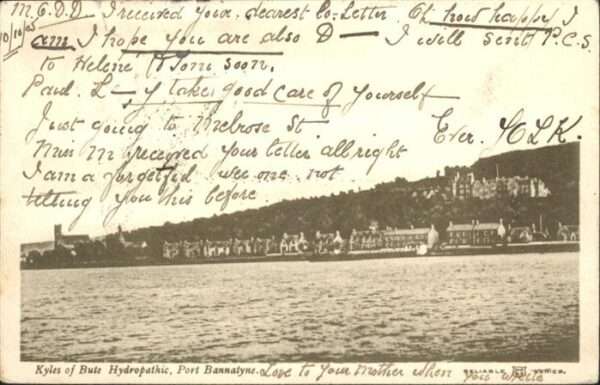 M.E.D.D. I received your dearest Co-Letter. Oh how happy I
10/10/05
am I hope you are also D— I will sent P.C.S.
to Helene & Tom soon.
Paul. L— y take good care of yourself
Just going to Melrose St.
Ever. HLK.
Miss M received your letter all right
I am a forgetful wee one not
telling you this before
Kyles of Bute Hydropathic, Port Bannatyne.
Love to your Mother when you write
RELIABLE SERIES